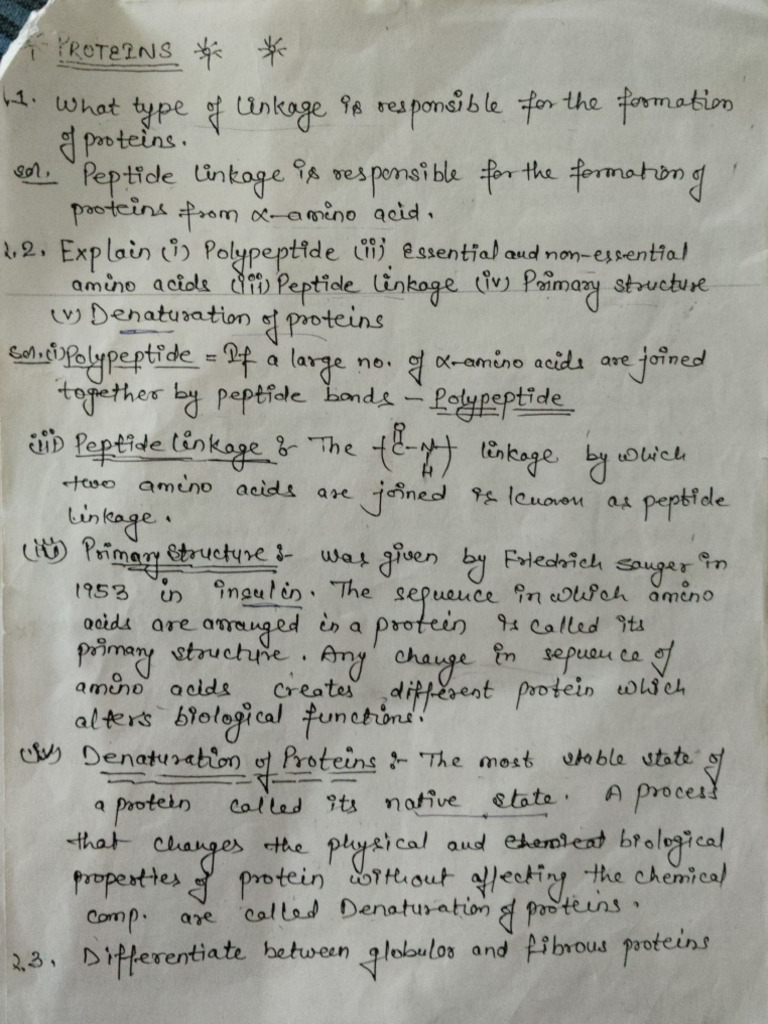 * PROTEINS * *
1. What type of linkage is responsible for the formation
of proteins.
Sol. Peptide linkage is responsible for the formation of
proteins from α-amino acid.
2.2. Explain (i) Polypeptide (ii) Essential and non-essential
amino acids (iii) Peptide linkage (iv) Primary structure
(v) Denaturation of proteins
Sol. (i) Polypeptide = If a large no. of α-amino acids are joined
together by peptide bonds - Polypeptide
(iii) Peptide linkage :- The (-C-N-) linkage by which
O
H
two amino acids are joined is known as peptide
linkage.
(iv) Primary structure :- was given by Friedrich Sanger in
1953 in insulin. The sequence in which amino
acids are arranged in a protein is called its
primary structure. Any change in sequence of
amino acids creates different protein which
alters biological functions.
(iv) Denaturation of Proteins :- The most stable state of
a protein called its native state. A process
that changes the physical and biological
properties of protein without affecting the chemical
comp. are called Denaturation of proteins.
2.3. Differentiate between globular and fibrous proteins